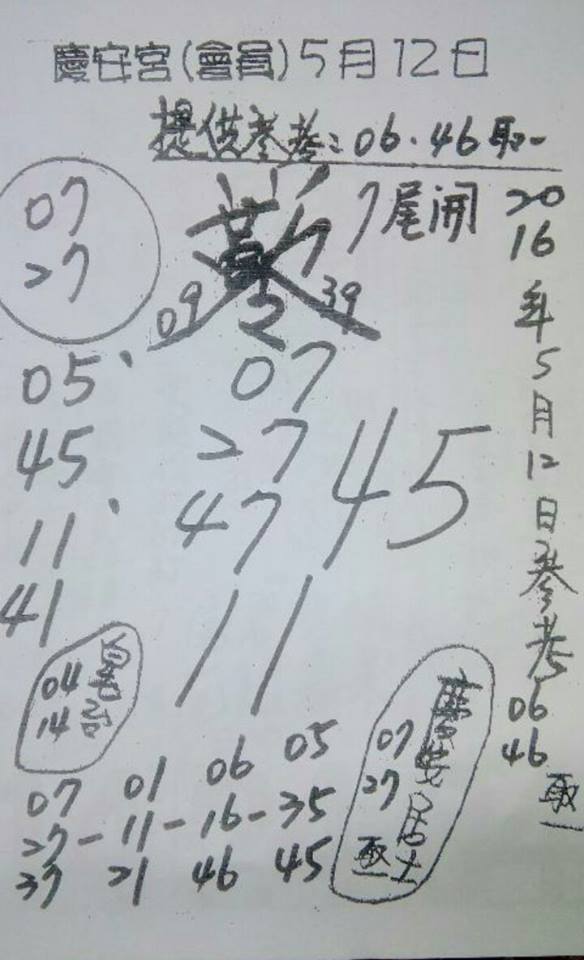 慶安宮(會員)5月12日
提供參考:06.46取一
07
27
7尾開
09 39
05
45
11
41
07
27
47
45
11
2016年5月12日參考
06
46
取一
04
14
慶安居士
07
27
取一
07 01 06 05
27-11-16-35
37 21 46 45